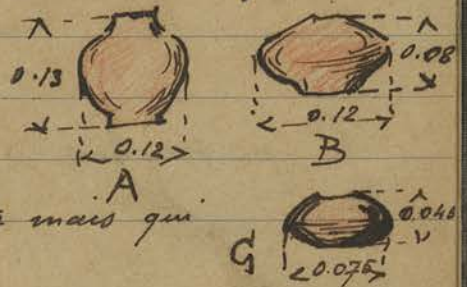 0.13
0.12
A
0.08
0.12
B
mais qui
0.045
0.075
G